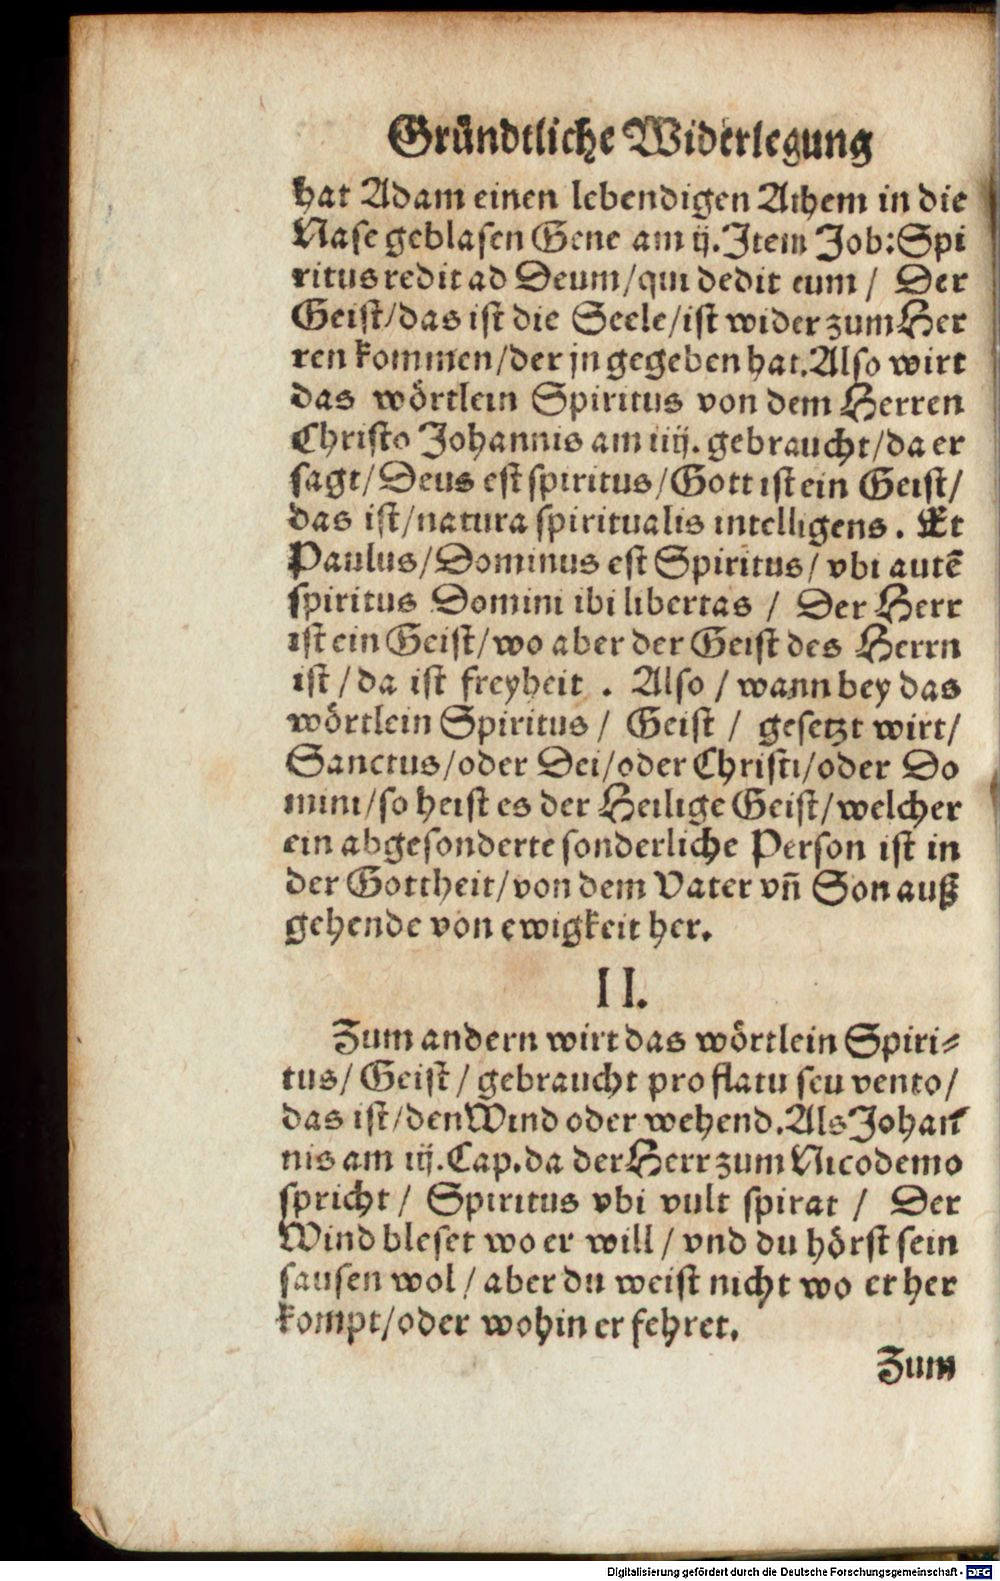 Gründtliche Widerlegung
hat Adam einen lebendigen Athem in die
Nase geblasen Gene am ij. Item Job: Spi
ritus redit ad Deum/qui dedit eum / Der
Geist/das ist die Seele/ist wider zum Her
ren kommen/der jn gegeben hat. Also wirt
das wörtlein Spiritus von dem Herren
Christo Johannis am iiij. gebraucht/da er
sagt/Deus est spiritus/Gott ist ein Geist/
das ist/natura spiritualis intelligens. Et
Paulus/Dominus est Spiritus/ vbi autē
spiritus Domini ibi libertas / Der Herr
ist ein Geist/wo aber der Geist des Herrn
ist / da ist freyheit . Also / wann bey das
wörtlein Spiritus / Geist / gesetzt wirt/
Sanctus/oder Dei/oder Christi/oder Do
mini/so heist es der Heilige Geist/welcher
ein abgesonderte sonderliche Person ist in
der Gottheit/von dem Vater vñ Son auß
gehende von ewigkeit her.
II.
Zum andern wirt das wörtlein Spiri⸗
tus/ Geist / gebraucht pro flatu seu vento/
das ist/den Wind oder wehend. Als Johañ
nis am iij. Cap. da der Herr zum Nicodemo
spricht / Spiritus vbi vult spirat / Der
Wind bleset wo er will / vnd du hörst sein
sausen wol / aber du weist nicht wo er her
kompt/oder wohin er fehret.
Zum
Digitalisierung gefördert durch die Deutsche Forschungsgemeinschaft - DFG